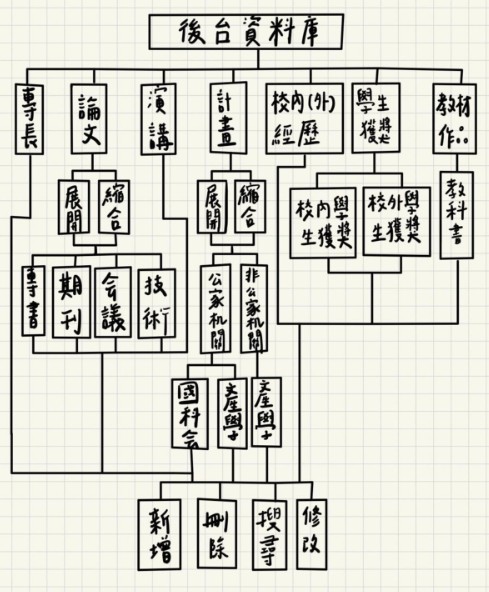 後台資料庫
專長
論文
演講
計畫
校內(外)
經歷
學生
獲獎
教材
作∴
展開
縮合
展開
縮合
校內學
生獲獎
校外學
生獲獎
教科書
專書
期刊
会議
技術
公家机關
非公家机關
國科会
產學
產學
新增
刪除
搜尋
修改